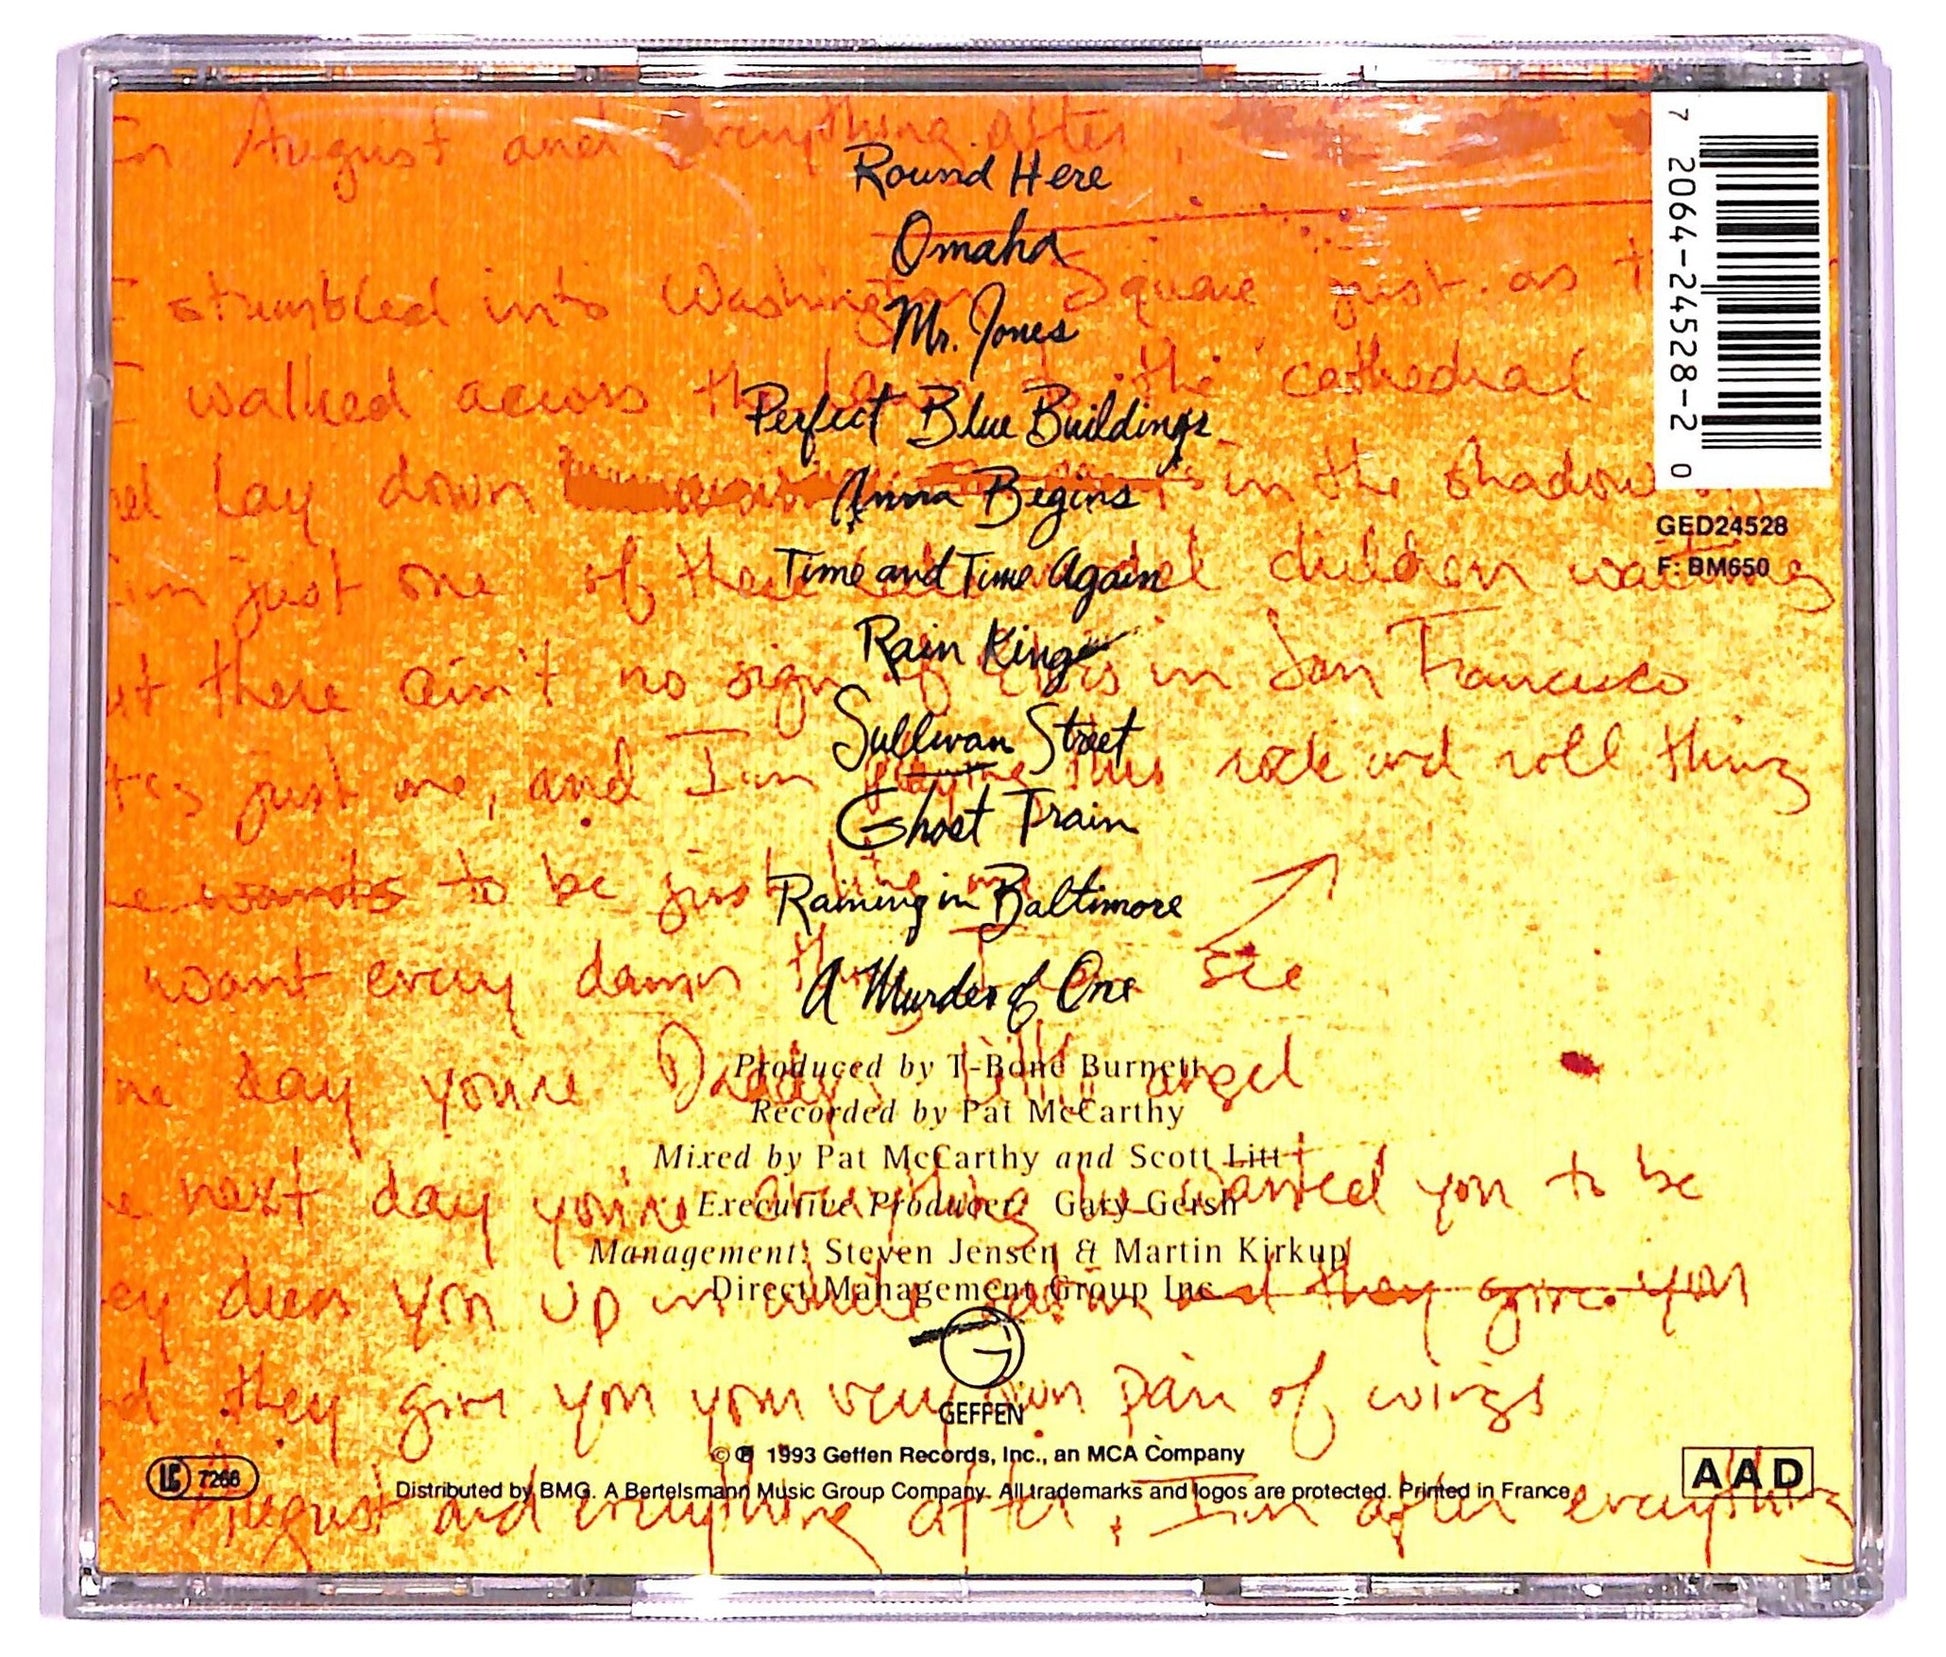 In August and everything after,
Round Here
Omaha
I stumbled into Washington Square just as
Mr. Jones
I walked across the the cathedral
Perfect Blue Buildings
lay down in the shadow
Anna Begins
I'm just one of these children waiting
Time and Time Again
Rain King
there ain't no sign of in San Francisco
Sullivan Street
just me, and I'm playing this rock and roll thing
Ghost Train
wants to be just like me
Raining in Baltimore
want every damn thing I see
A Murder of One
day you're Daddy's little angel
Produced by T-Bone Burnett
Recorded by Pat McCarthy
Mixed by Pat McCarthy and Scott Litt
next day you're everything he wanted you to be
Executive Producer: Gary Gersh
Management: Steven Jensen & Martin Kirkup
Direct Management Group Inc
dress you up in white satin and they give you
they give you your very own pair of wings
GEFFEN
© ℗ 1993 Geffen Records, Inc., an MCA Company
Distributed by BMG. A Bertelsmann Music Group Company. All trademarks and logos are protected. Printed in France
August and everything after, I'm after everything
LC 7266
AAD
7 2064-24528-2 0
GED24528
F: BM650